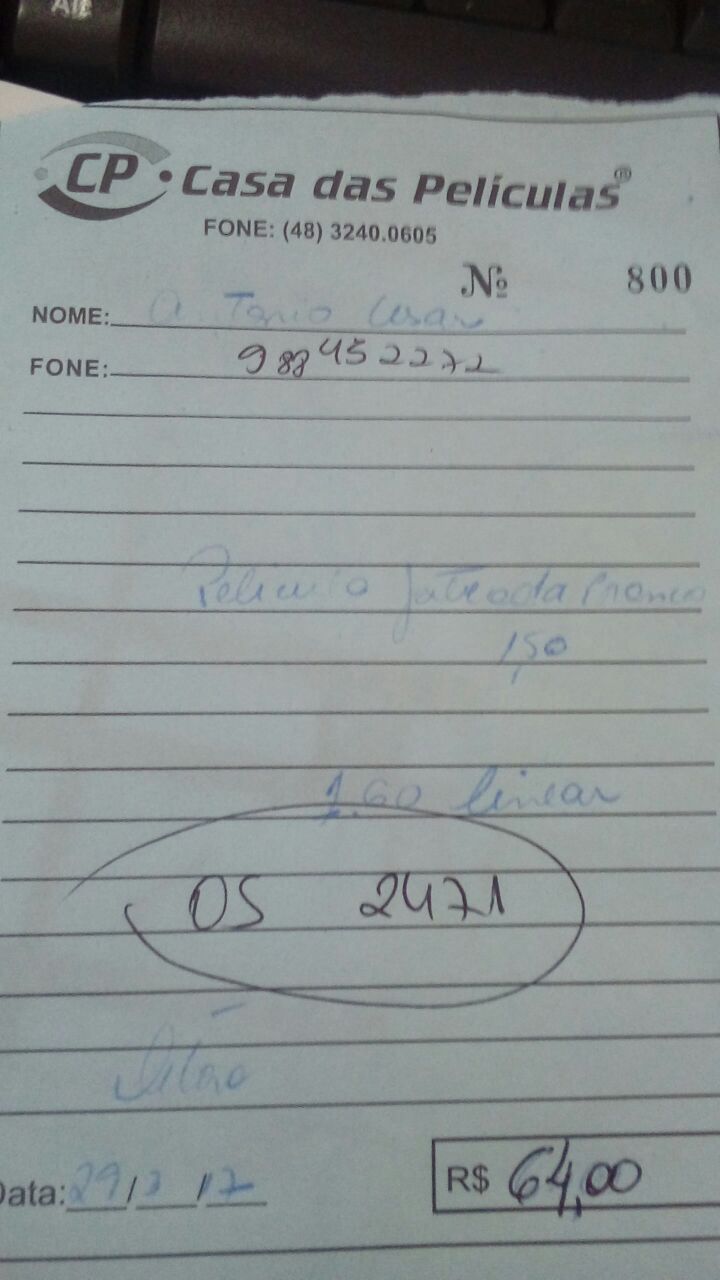 Alt
CP • Casa das Películas ®
FONE: (48) 3240.0605
Nº 800
NOME: Antonio Cesar
FONE: 988452272
Pelicula Jateada Branca
1,50
1.60 linear
OS 2471
Data: 29/3/17
R$ 64,00